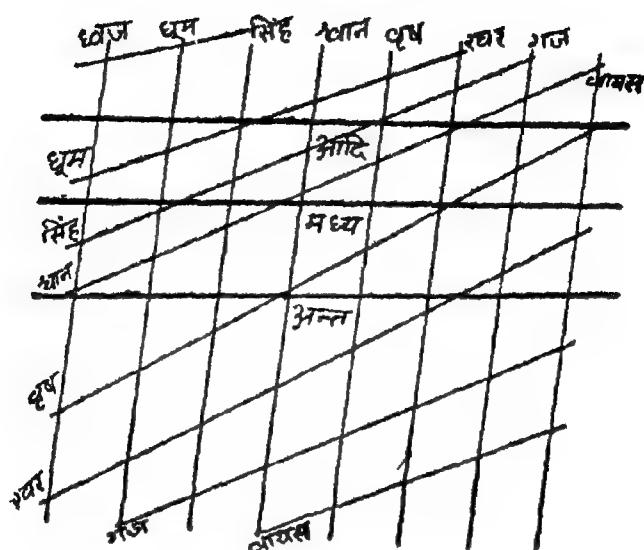 ध्वज धूम सिंह श्वान वृष खर गज
वायस
धूम
आदि
सिंह
मध्य
श्वान
अन्त
वृष
खर
गज
वायस